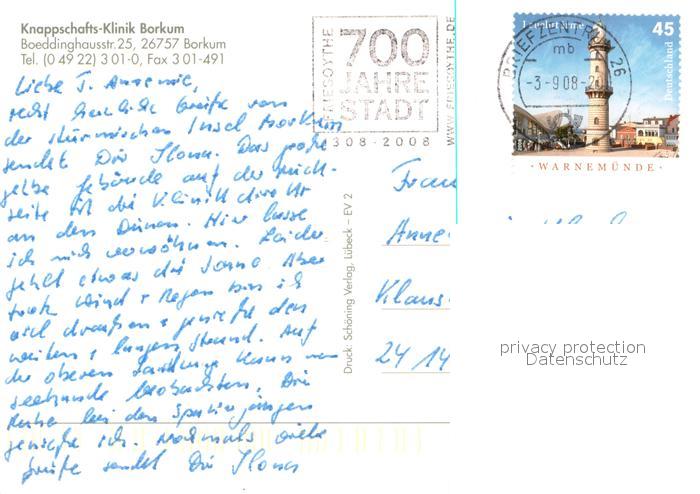 Knappschafts-Klinik Borkum
Boeddinghausstr. 25, 26757 Borkum
Tel. (0 49 22) 3 01-0, Fax 3 01-491
Liebe T. Annemie,
recht herzliche Grüße von
der stürmischen Insel Borkum
sendet Dir Ilona. Das große
gelbe Gebäude auf der Rück-
seite ist die Klinik direkt
an den Dünen. Hier lasse
ich mich verwöhnen. Leider
fehlt etwas die Sonne. Aber
trotz Wind + Regen bin ich
viel draußen + genieße den
weiten + langen Strand. Auf
der oberen Sandbank kann man
Seehunde beobachten. Die
Ruhe bei den Spaziergängen
genieße ich. Nochmals viele
Grüße sendet Dir Ilona
FRIESOYTHE
700
JAHRE
STADT
1308-2008
WWW.FRIESOYTHE.DE
Druck: Schöning Verlag, Lübeck – EV 2
Frau
Anne
Klaus
24 14
Leuchttürme
45
Deutschland
BRIEFZENTRUM 26
mb
-3-9 08-20
· WARNEMÜNDE ·
privacy protection
Datenschutz